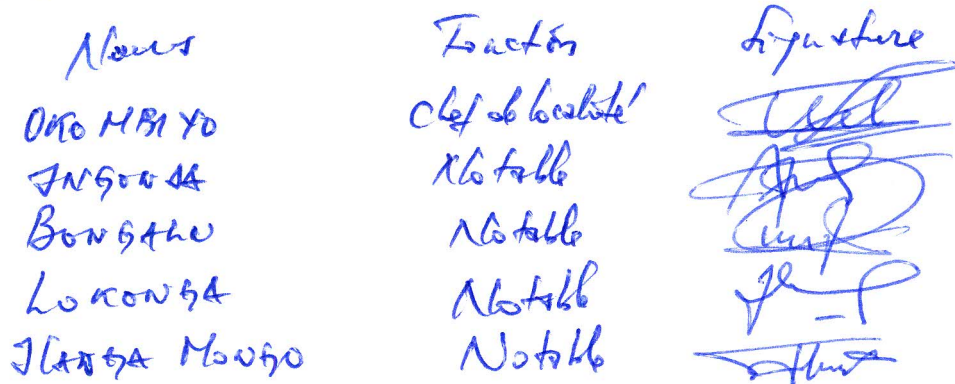 Noms Fonction Signature
OKO MBI YO Chef de localité
INGONDA Notable
BONGALU Notable
LOKONGA Notable
ILANGA MONGO Notable